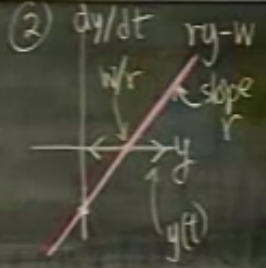 ② dy/dt
ry-w
w/r
slope
r
y
y(t)